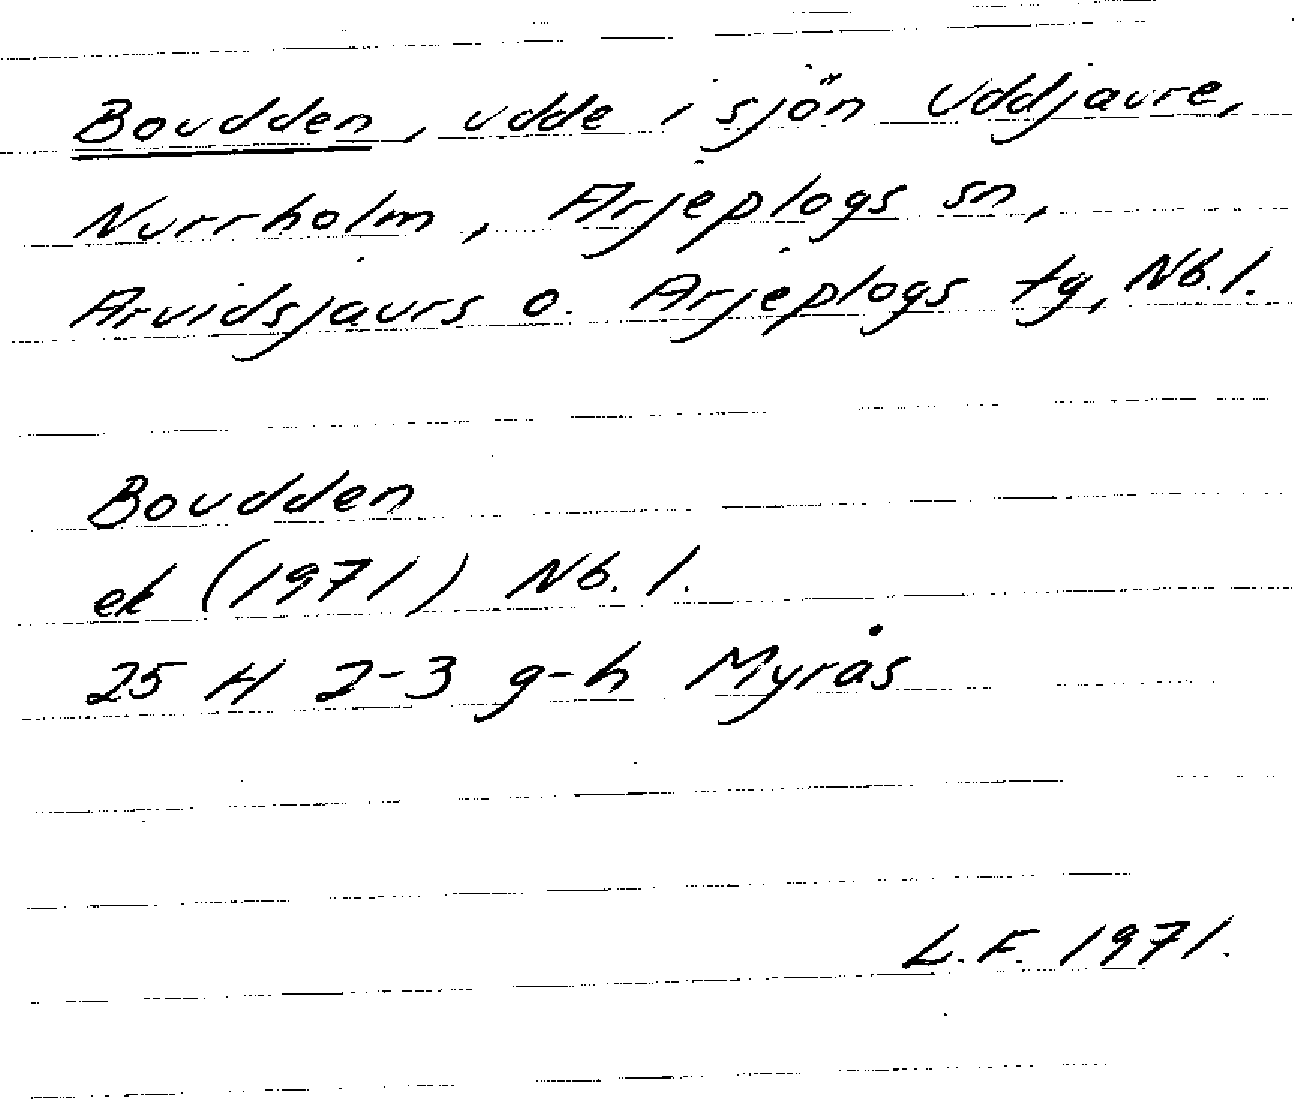 Boudden, udde i sjön Uddjaure,
Nurrholm, Arjeplogs sn,
Arvidsjaurs o. Arjeplogs tg, Nb.l.
Boudden
ek (1971) Nb. l.
25 H 2-3 g-h Myrås
L.F. 1971.